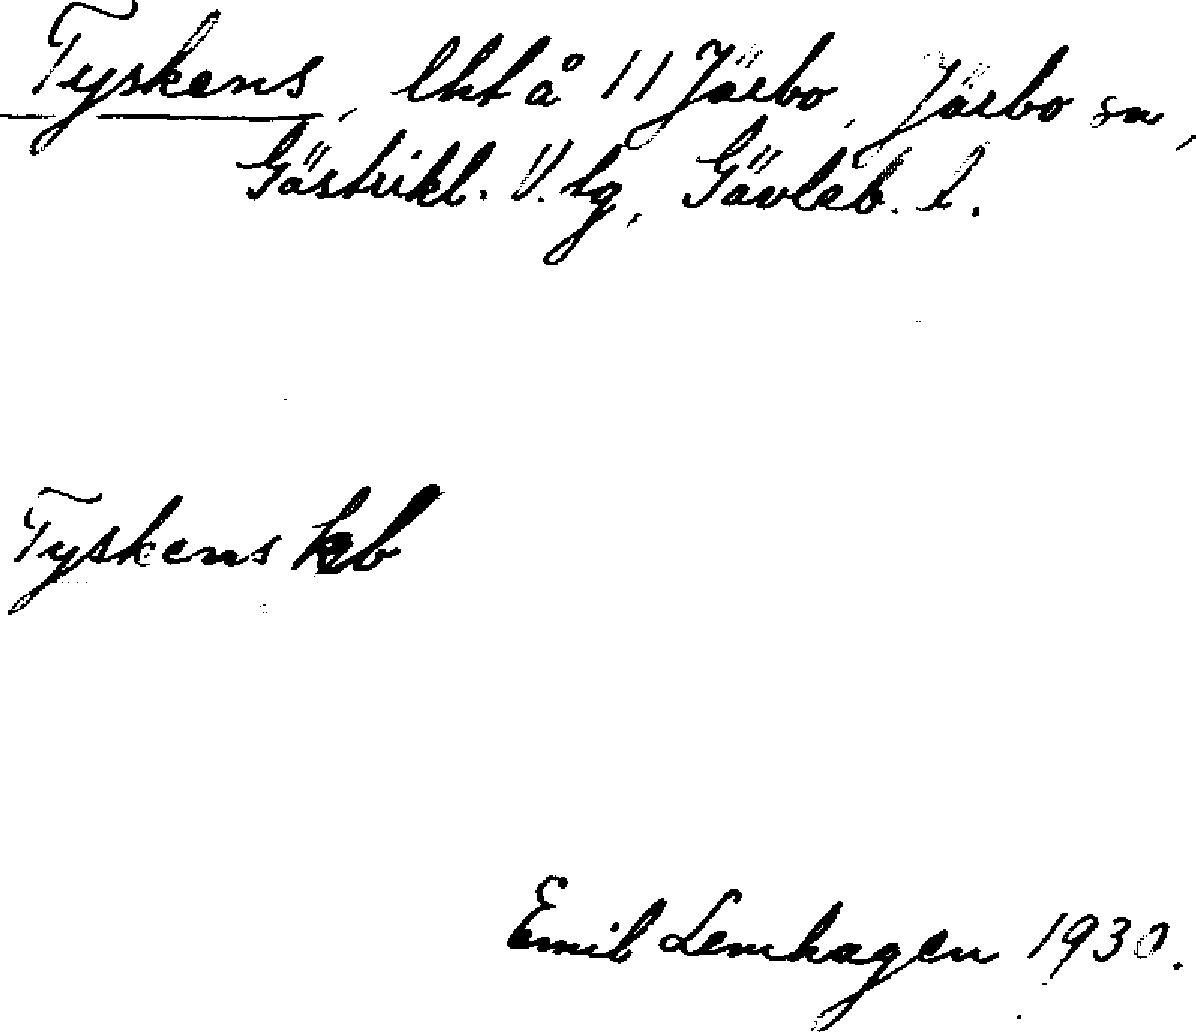 Tyskens, lht å 11 Järbo, Järbo sn,
Gästrikl. V. tg, Gävleb. l.
Tyskens kb
Emil Lemhagen 1930.